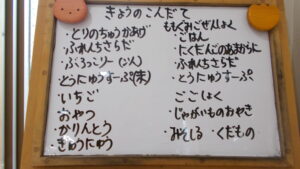 きょうのこんだて
・とりのちゅうかあげ
・ふれんちさらだ
・ぶろっこりー
・とうにゅうすーぷ(末)
いちご
おやつ
かりんとう
ぎゅうにゅう
ももぐみごぜんしょく
・ごはん
・たくだんごのあまからに
・ふれんちさらだ
・とうにゅうすーぷ
ごごしょく
・じゃがいものおやき
・みそしる ・くだもの